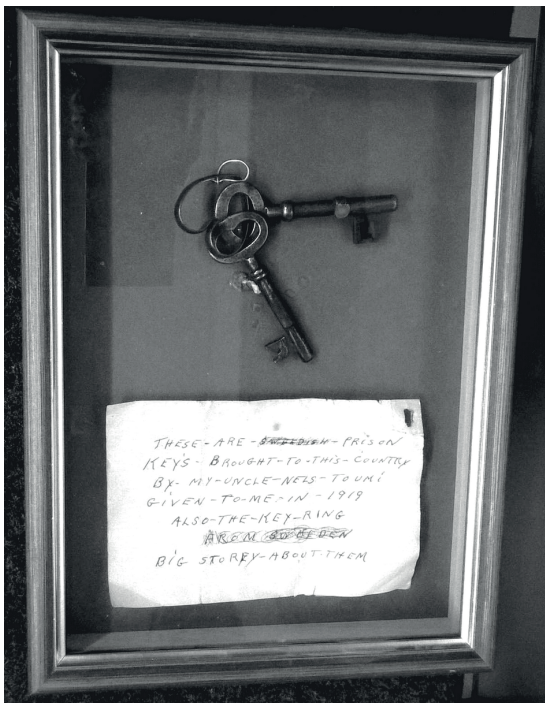 THESE-ARE-SWEDISH-PRISON
KEYS-BROUGHT-TO-THIS-COUNTRY
BY-MY-UNCLE-NELS-TOUMI
GIVEN-TO-ME-IN-1919
ALSO-THE-KEY-RING
FROM SWEDEN
BIG STOREY-ABOUT-THEM